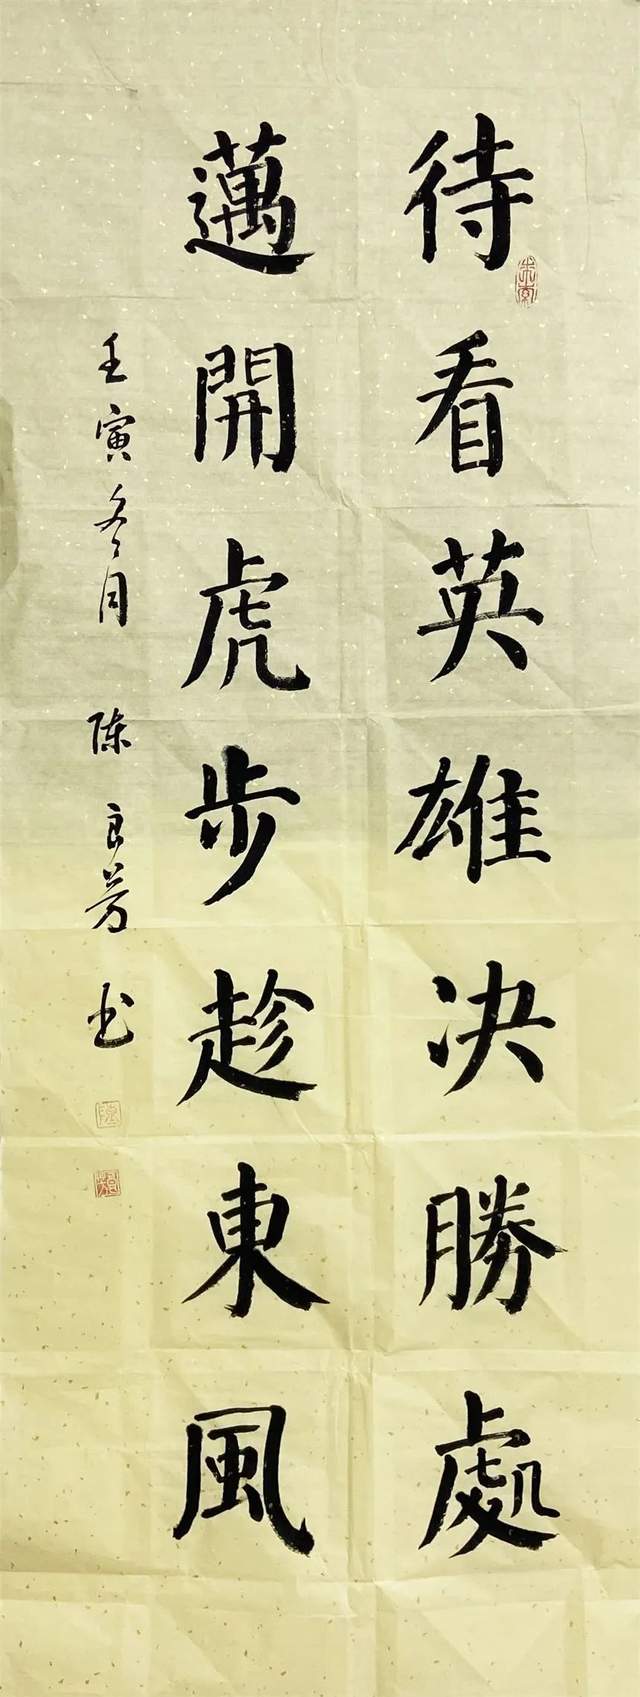 待看英雄决勝處
邁開虎步趁東風
壬寅冬月 陈良芳书